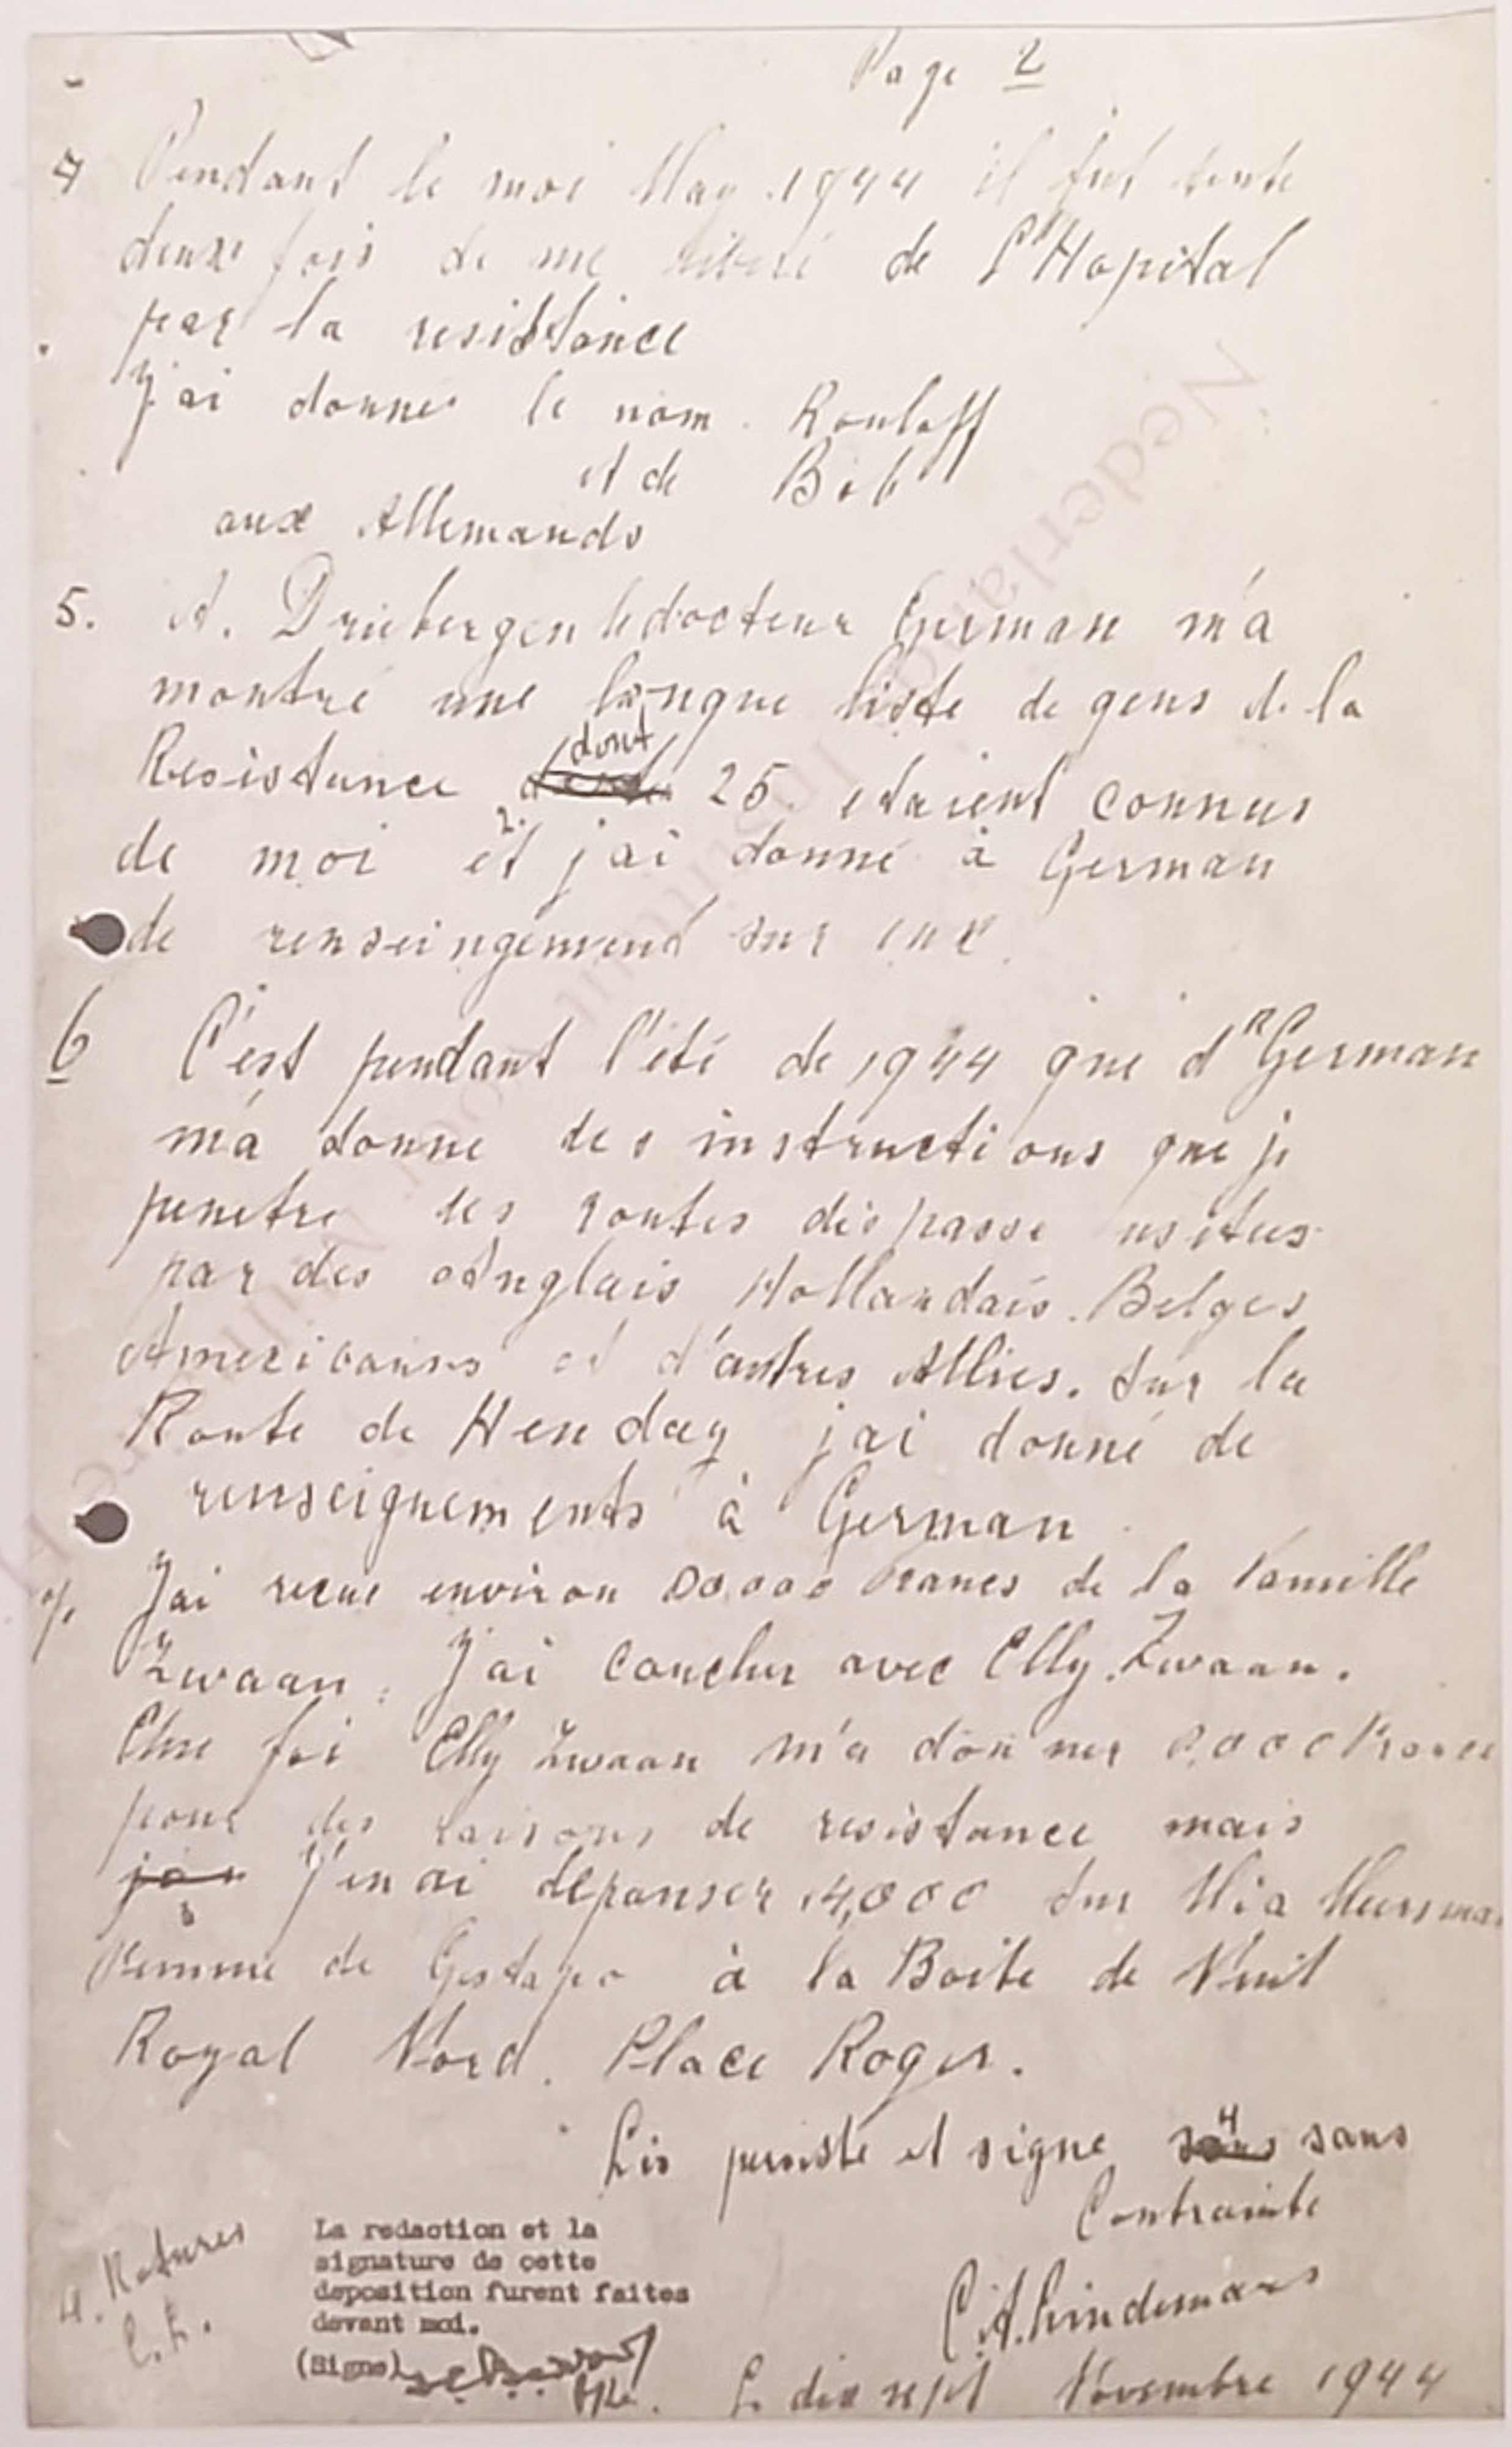 Page 2
4 Pendant le moi May 1944 il fut tente
deux fois de me de l'Hopital
par la resistance
J'ai donner le nom. Rouloff
et de Bob
aux Allemands
5. A. Driebergen le docteur German m'a
montré une longue liste de gens de la
Resistance dont 25 etaient connus
de moi 2. et j'ai donné à German
de renseingemend sur eux.
6 C'est pendant l'été de 1944 que dR German
m'a donne des instructions que je
penetre les routes des passe usitees
par des Anglais Hollandais. Belges
Americains et d'autres Allies. Sur la
Route de Henday j'ai donné de
renseignements à German
7. J'ai recue environ francs de la Famille
Zwaan. J'ai coucher avec Elly Zwaan.
Une foi Elly Zwaan m'a donner France
pour des raisons de resistance mais
J'en ai depanser 14,000 sur Mia Meersman
3
Femme de Gestapo à la Boite de Nuit
Royal Nord. Place Roger.
Lis persiste et signe 4 sans
Contrainte
4. Ratures
C.L.
La redaction et la
signature de cette
deposition furent faites
devant moi.
(Signe)
C.A. Lindemans
Le dix sept Novembre 1944
Nederlands Instituut voor Militaire